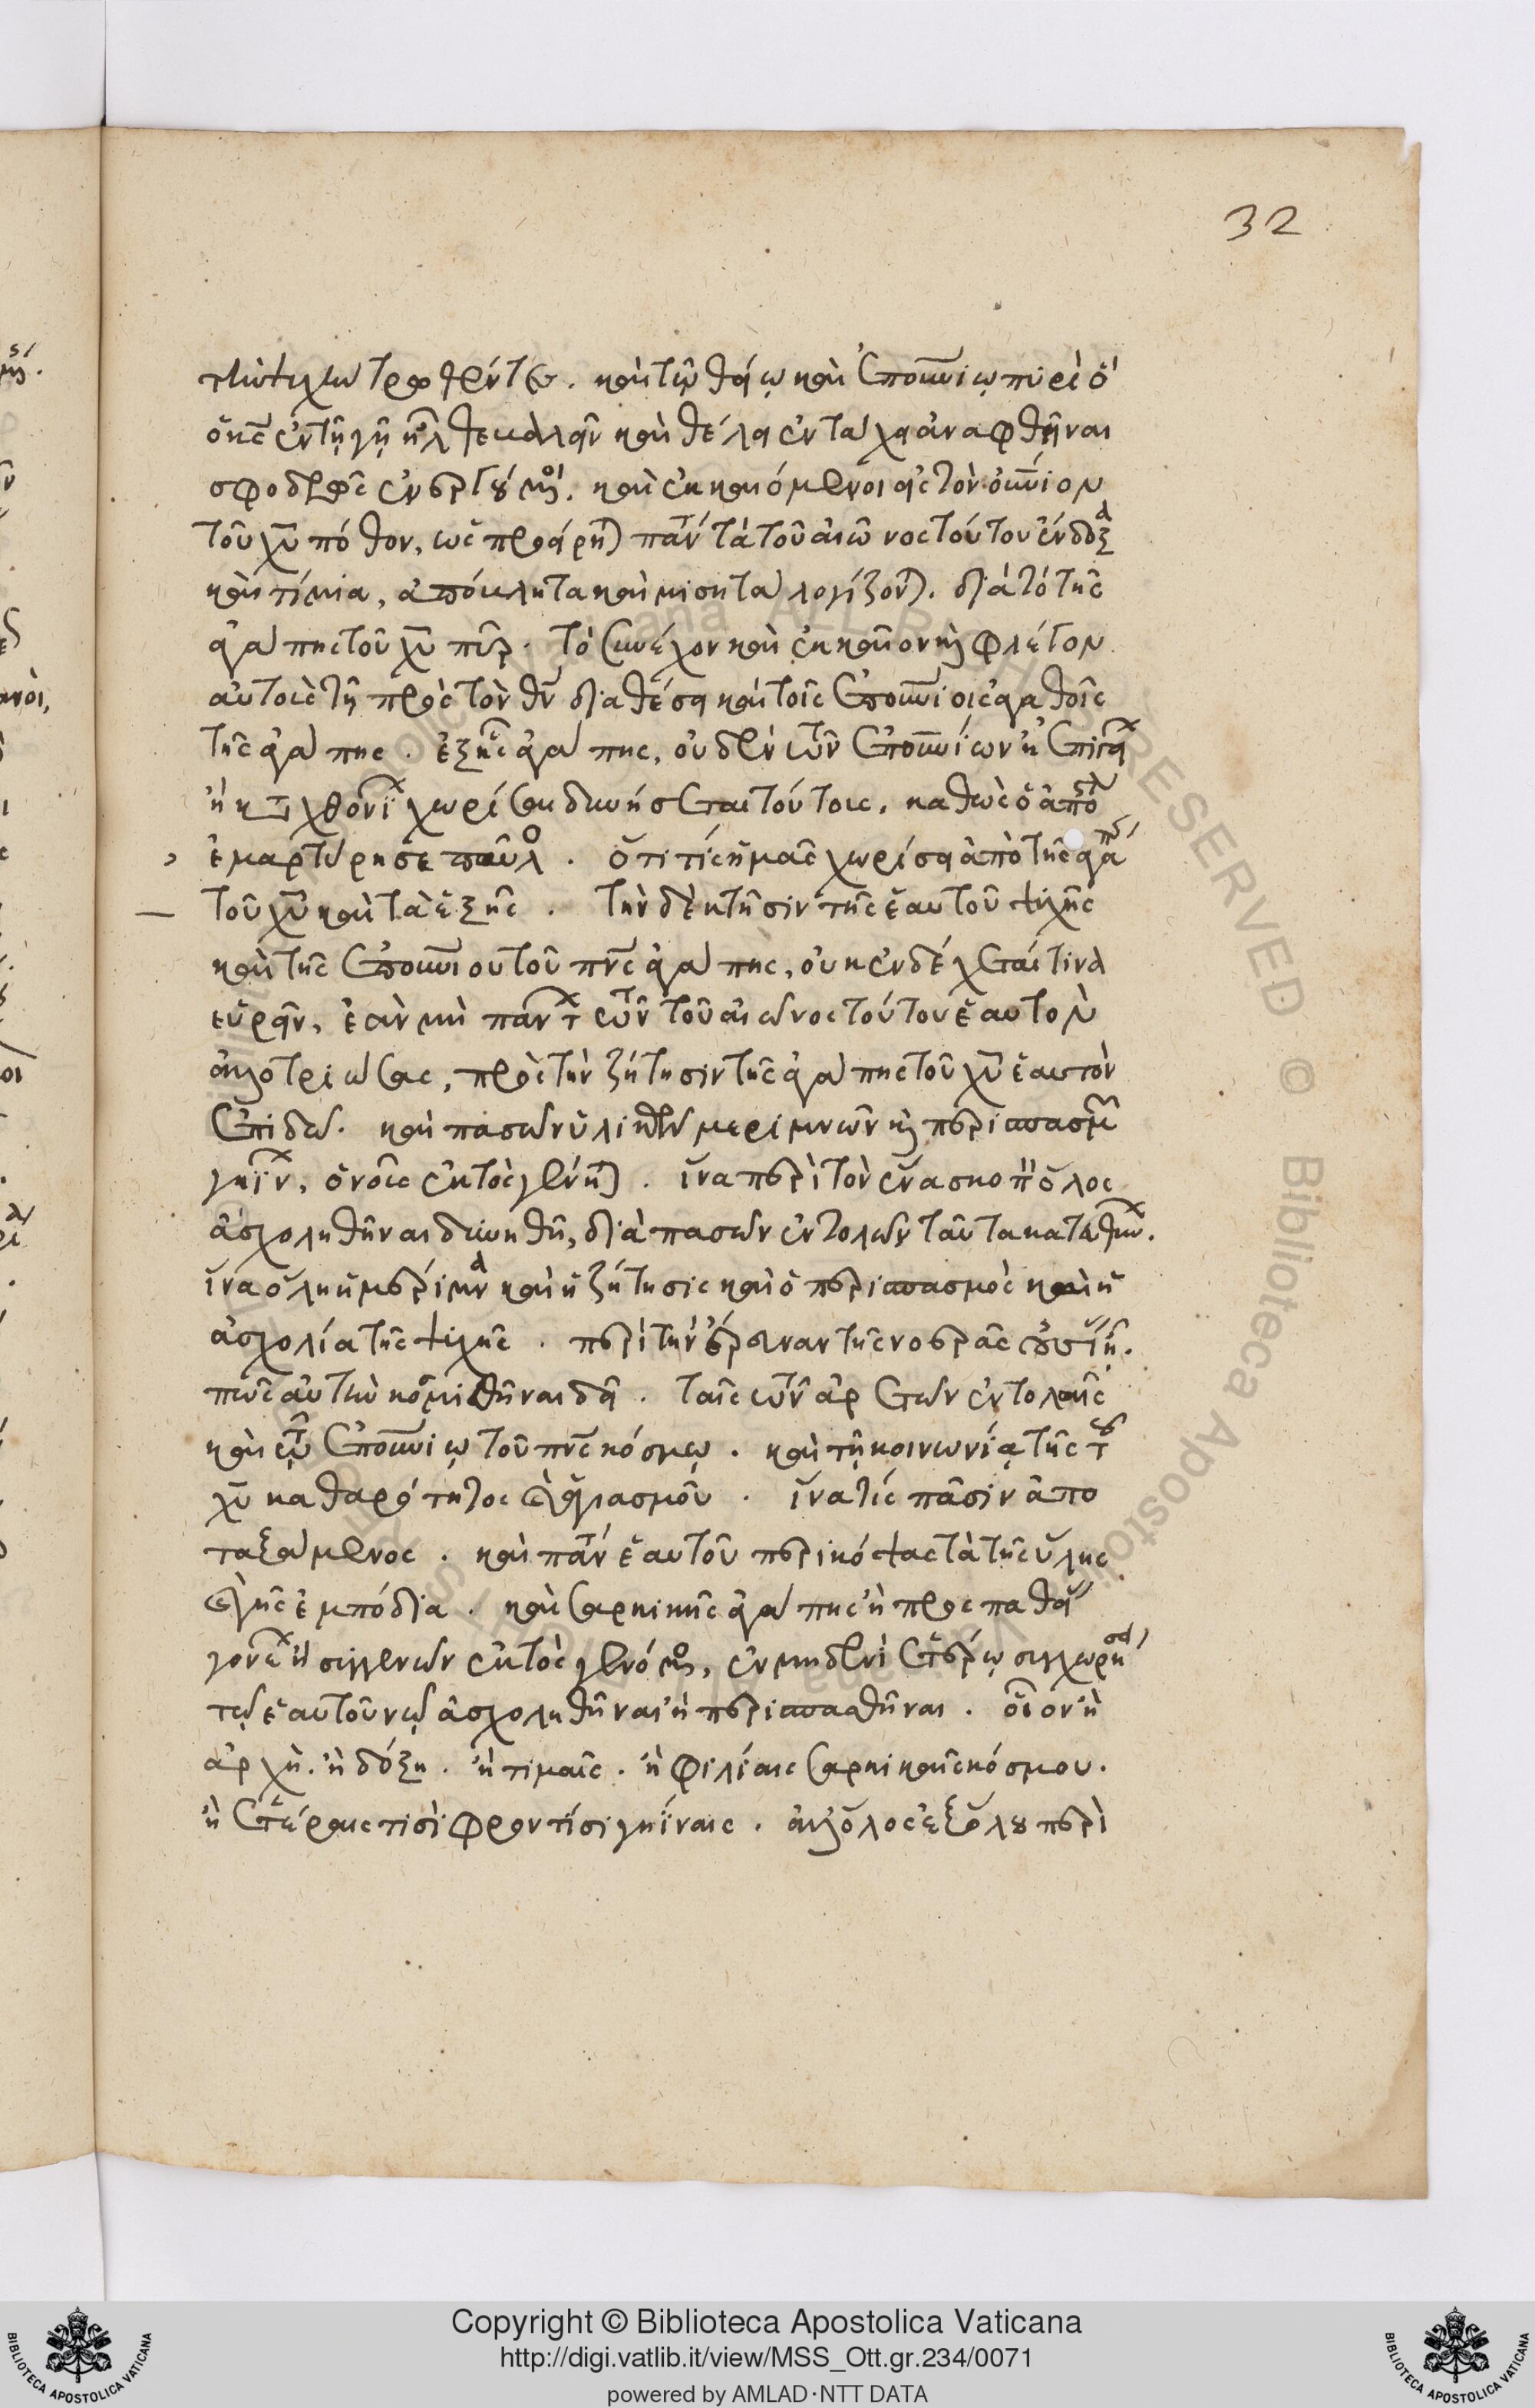 32
τὴν ψυχὴν τρωθέντες. καὶ τῷ θείῳ καὶ ἐπουνίῳ πυρὶ ὃ
ὁ κς ἐν τῇ γῇ ἦλθε βαλεῖν καὶ θέλει ἐν τάχει ἀναφθῆναι
σφοδρῶς ἐνεργούμενοι. καὶ ἐκκαιόμενοι εἰς τὸν οὐνιον
τοῦ χυ πόθον, ὡς προείρηται πάντα τὰ τοῦ αἰῶνος τούτου ἔνδοξα
καὶ τίμια, ἀπόβλητα καὶ μισητὰ λογίζονται. διὰ τὸ τῆς
ἀγάπης τοῦ χυ πῦρ. τὸ συνέχον καὶ ἐκκαῖον καὶ φλέγον
αὐτοὺς τῇ πρὸς τὸν θν διαθέσει καὶ τοῖς ἐπουνίοις ἀγαθοῖς
τῆς ἀγάπης. ἐξ ἧς ἀγάπης, οὐδὲν τῶν ἐπουνίων ἢ ἐπιγείων
ἢ καταχθονίων χωρίσαι δυνήσεται τούτους, καθὼς ὁ ἀπόστολος
ἐμαρτύρησε παῦλος. ὅτι τίς ἡμᾶς χωρίσει ἀπὸ τῆς ἀγάπης
τοῦ χυ καὶ τὰ ἑξῆς. τὴν δὲ κτῆσιν τῆς ἑαυτοῦ ψυχῆς
καὶ τῆς ἐπουνίου τοῦ πνς ἀγάπης, οὐκ ἐνδέχεταί τινα
εὑρεῖν, ἐὰν μὴ πάντων τῶν τοῦ αἰῶνος τούτου ἑαυτὸν
ἀλλοτριώσας, πρὸς τὴν ζήτησιν τῆς ἀγάπης τοῦ χυ ἑαυτὸν
ἐπιδῶ. καὶ πασῶν ὑλικῶν μεριμνῶν καὶ περισπασμῶν
γηΐνων, ὁ νοῦς ἐκτὸς γένηται. ἵνα περὶ τὸν ἕνα σκοπὸν ὅλος
ἀσχοληθῆναι δυνηθῇ, διὰ πασῶν ἐντολῶν ταῦτα κατευθύνων.
ἵνα ὅλη ἡ μέριμνα καὶ ἡ ζήτησις καὶ ὁ περισπασμὸς καὶ ἡ
ἀσχολία τῆς ψυχῆς. περὶ τὴν ἔρευναν τῆς νοερᾶς οὐσίας ᾖ.
πῶς αὐτὴν κοσμηθῆναι δεῖ. ταῖς τῶν ἀρετῶν ἐντολαῖς
καὶ τῷ ἐπουνίῳ τοῦ πνς κόσμῳ. καὶ τῇ κοινωνίᾳ τῆς τοῦ
χυ καθαρότητος καὶ ἁγιασμοῦ. ἵνα τις πᾶσιν ἀπο
ταξάμενος. καὶ πάντα ἑαυτοῦ περικόψας τὰ τῆς ὕλης
καὶ γῆς ἐμπόδια. καὶ σαρκικῆς ἀγάπης ἢ προσπαθείας
γονέων ἢ συγγενῶν ἐκτὸς γενόμενος, ἐν μηδενὶ ἑτέρῳ συγχωρήσει
τῷ ἑαυτοῦ νῷ ἀσχοληθῆναι ἢ περισπασθῆναι. οἷον ἢ
ἀρχῇ. ἢ δόξῃ. ἢ τιμαῖς. ἢ φιλίαις σαρκικαῖς κόσμου.
ἢ ἑτέραις τισὶ φροντίσι γηΐναις. ἀλλ' ὅλος ἐξόλου περὶ
Copyright © Biblioteca Apostolica Vaticana
http://digi.vatlib.it/view/MSS_Ott.gr.234/0071
powered by AMLAD·NTT DATA